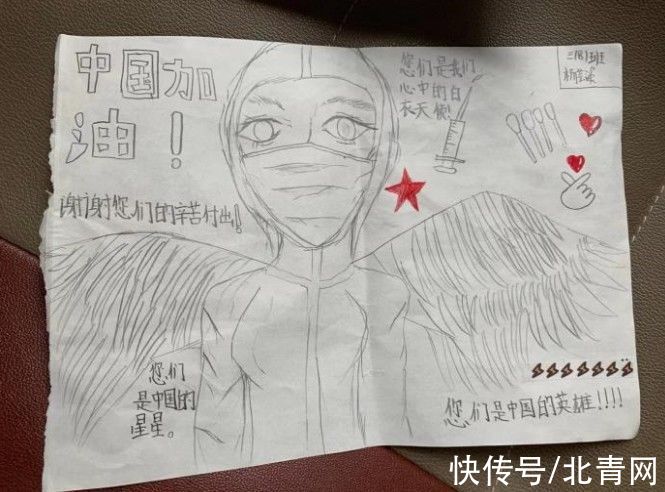 中国加
油！
您们是我们
心中的白
衣天使！
三(8)班
谢谢您们的辛苦付出！！
您们
是中国的
星星。
您们是中国的英雄！！！！
快传号/北青网